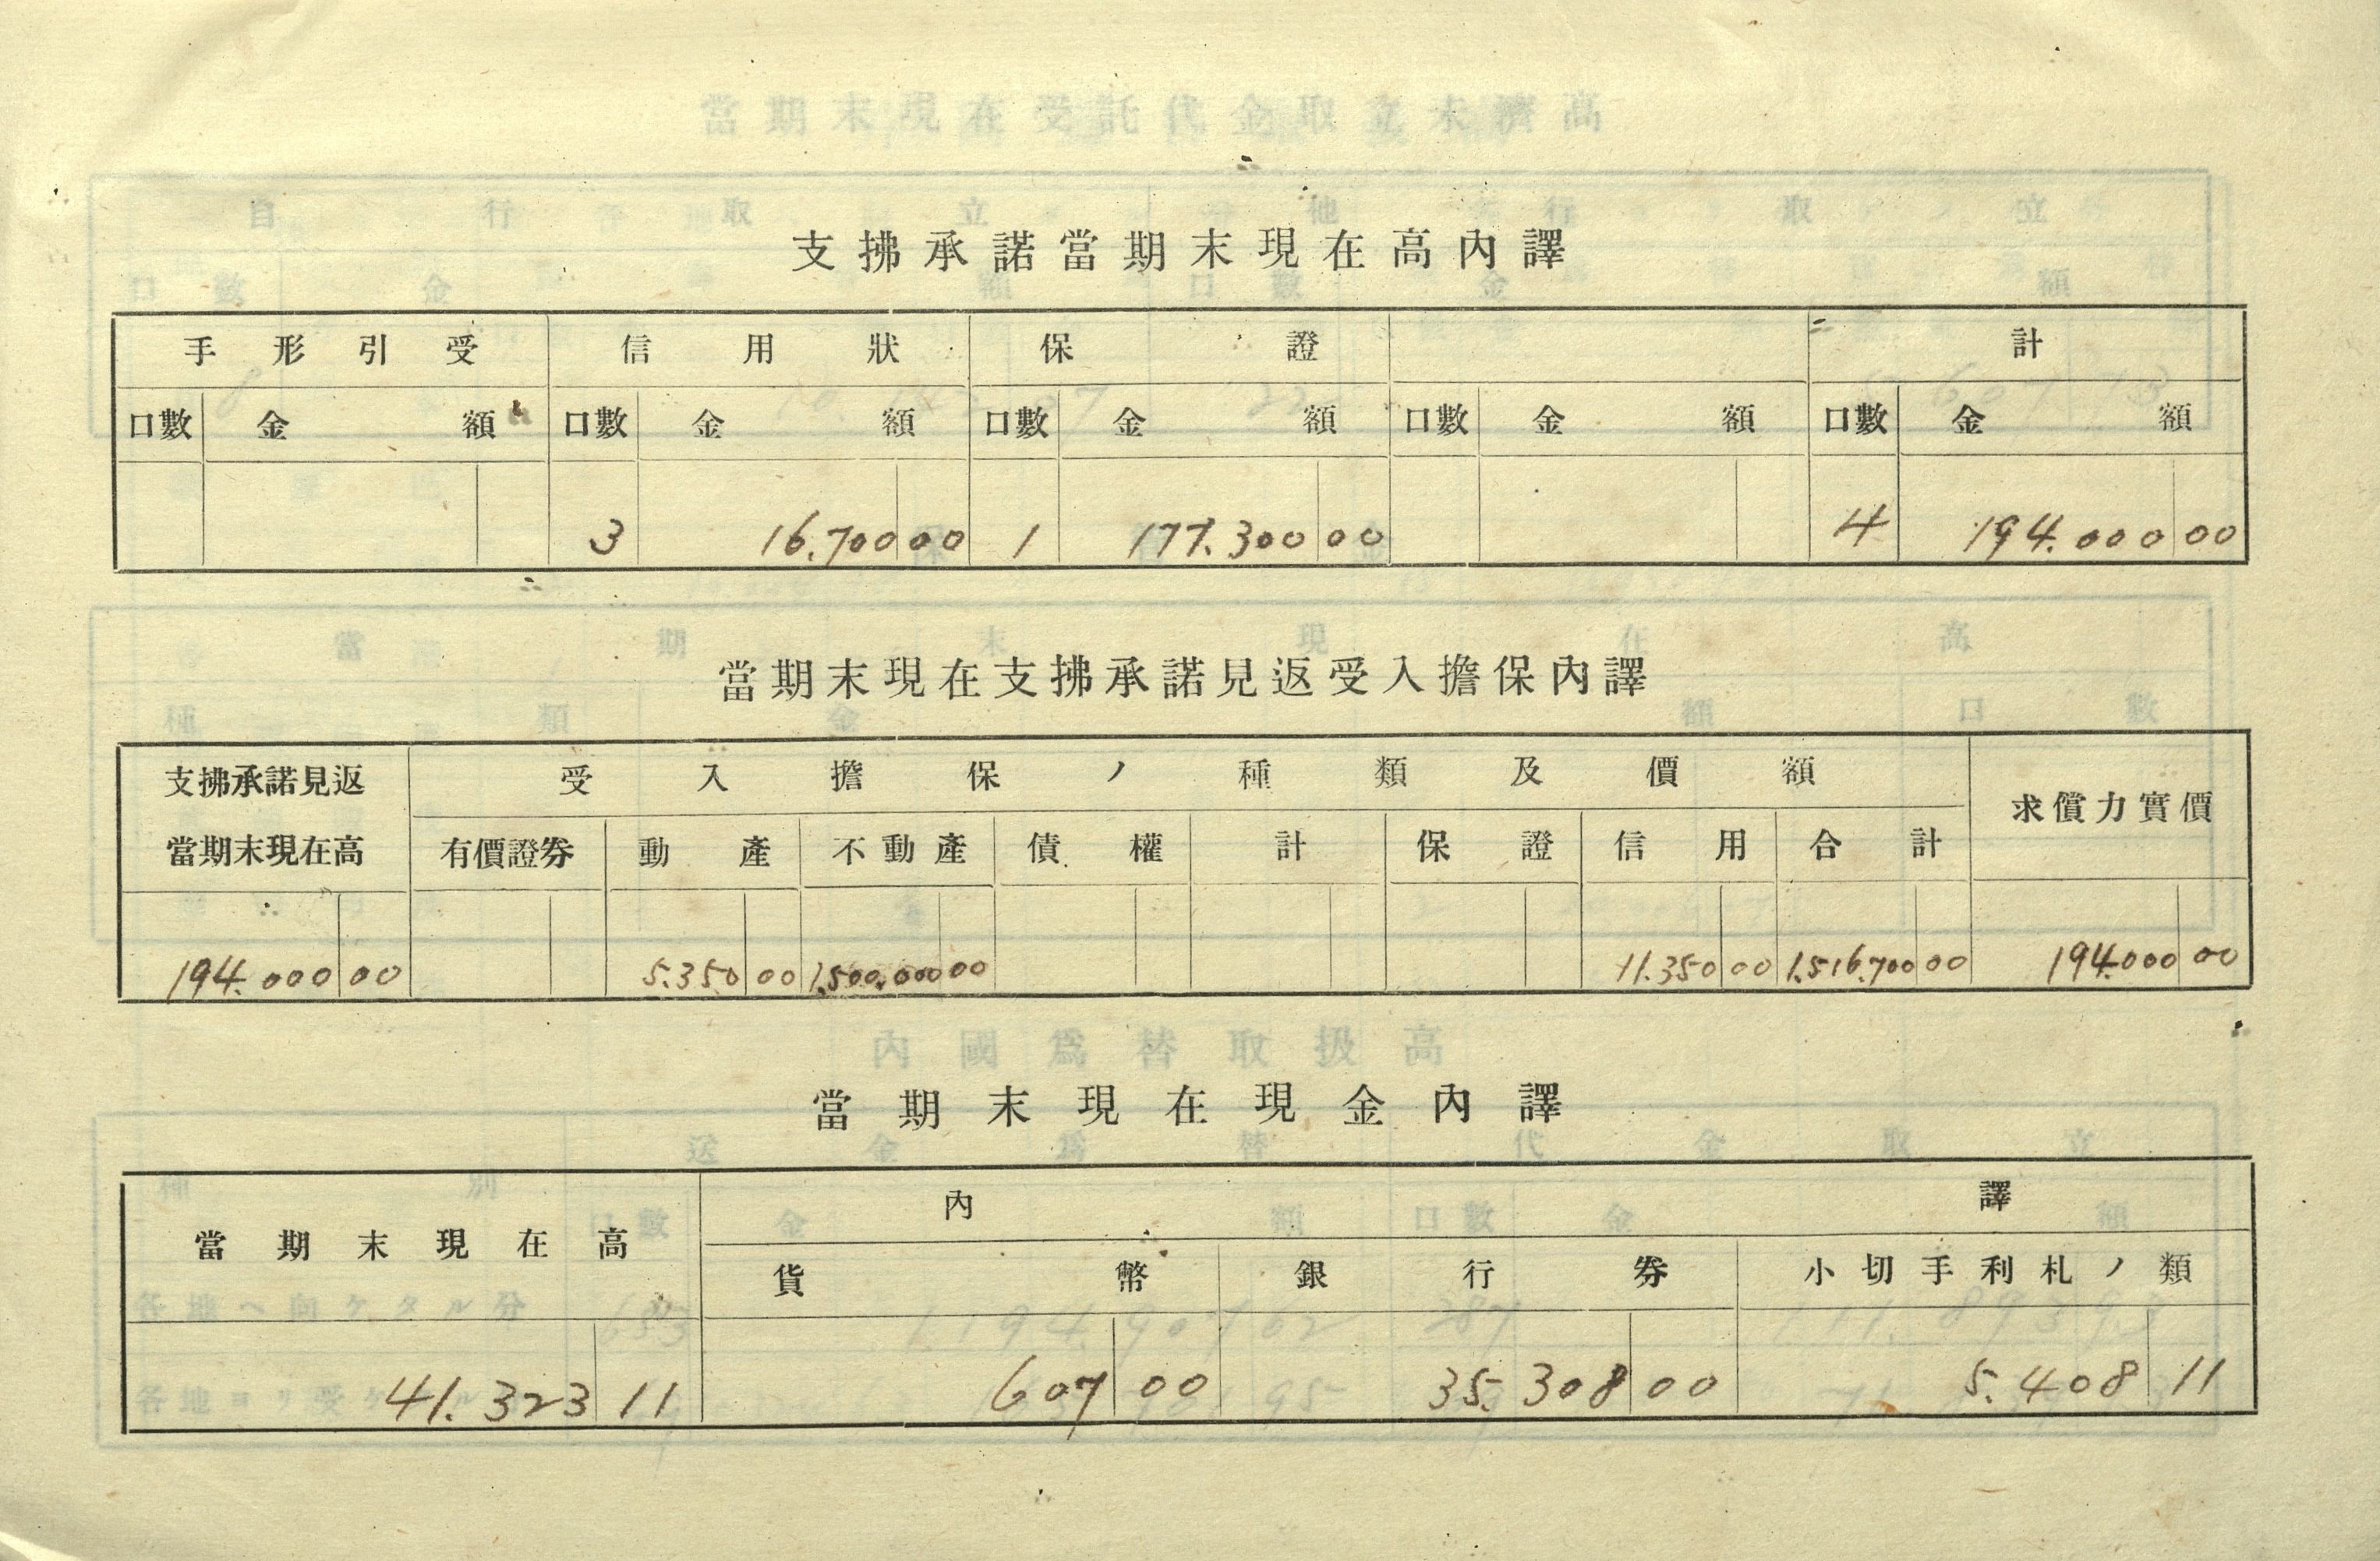 支拂承諾當期末現在高內譯
手形引受 信用狀 保證 計
口數 金額 口數 金額 口數 金額 口數 金額 口數 金額
3 16.700 00 1 177.300 00 4 194.000 00
當期末現在支拂承諾見返受入擔保內譯
支拂承諾見返 受入擔保ノ種類及價額 求償力實價
當期末現在高 有價證券 動產 不動產 債權 計 保證 信用 合計
194.000 00 5.350 00 1.500.000 00 11.350 00 1.516.700 00 194.000 00
當期末現在現金內譯
當期末現在高 內譯
貨幣 銀行券 小切手利札ノ類
41.323 11 607 00 35.308 00 5.408 11